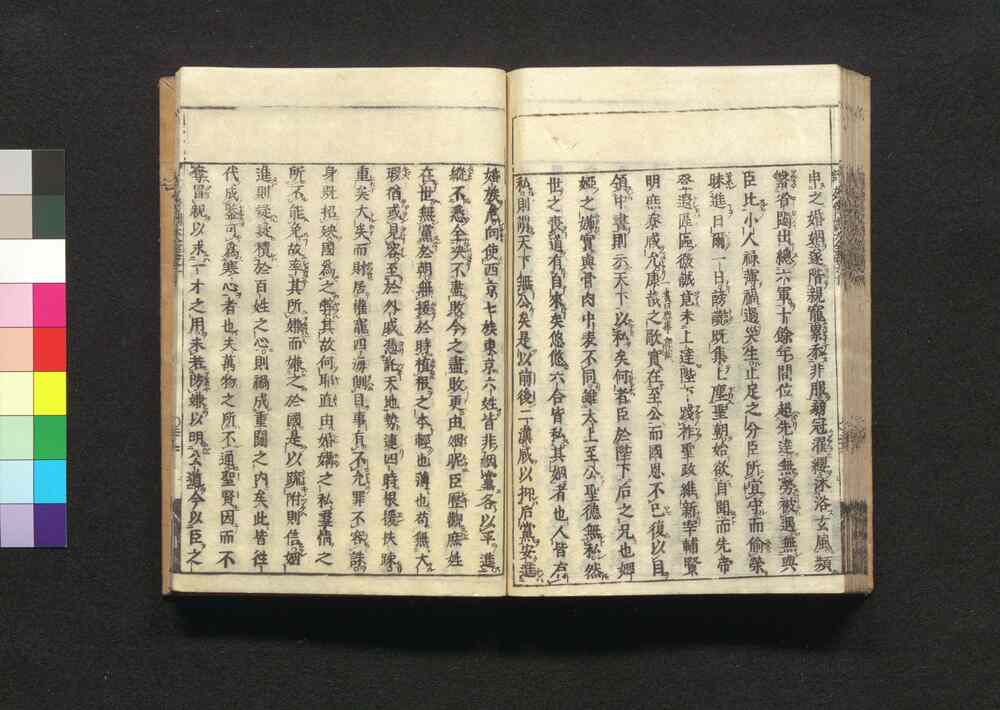 申之婚姻遂階親寵累忝非服翦冠濯纓沐浴玄風頻
繁省闥出總六軍十餘年間位超先達無勞被遇無與
臣比小人祿薄福過災生止足之分臣所宜守而偷榮
昧進日爾一日謗讟既集上塵聖朝始欲自聞而先帝
登遐區區微誠竟未上達陛下踐祚聖政維新宰輔賢
明庶寮咸允康哉之歌實在至公而國恩不已復以臣
領中書則示天下以私矣何者臣於陛下后之兄也姻
婭之嫌實與骨肉中表不同雖太上至公聖德無私然
世之喪道有自來矣悠悠六合皆私其姻者也人皆有
私則謂天下無公矣是以前後二漢咸以抑后黨安進
婚族危向使西京七族東京六姓皆非姻黨各以平進
縱不悉全決不盡敗今之盡敗更由姻昵臣歷觀庶姓
在世無黨於朝無援於時植根之本輕也薄也苟無大
瑕猶或見容至於外戚憑託天地勢連四時根援扶疎
重矣大矣而財居權寵四海側目事有不允罪不容誅
身既招殃國為之弊其故何耶直由婚媾之私羣情之
所不能免故率其所嫌而嫌之於國是以疏附則信姻
進則疑疑積於百姓之心則禍成重闥之內矣此皆往
代成鑒可為寒心者也夫萬物之所不通聖賢因而不
奪冒親以求一才之用未若防嫌以明公道今以臣之